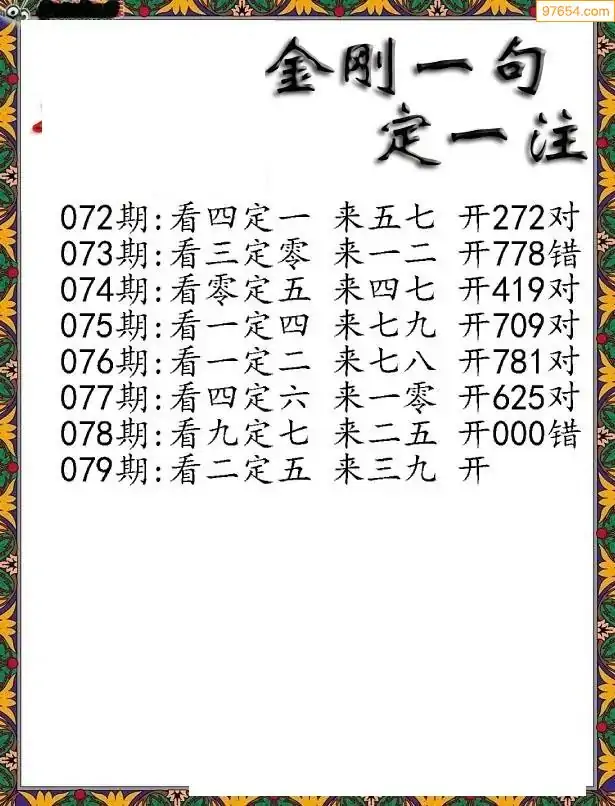 97654.com
金刚一句
定一注
072期:看四定一 来五七 开272对
073期:看三定零 来一二 开778错
074期:看零定五 来四七 开419对
075期:看一定四 来七九 开709对
076期:看一定二 来七八 开781对
077期:看四定六 来一零 开625对
078期:看九定七 来二五 开000错
079期:看二定五 来三九 开